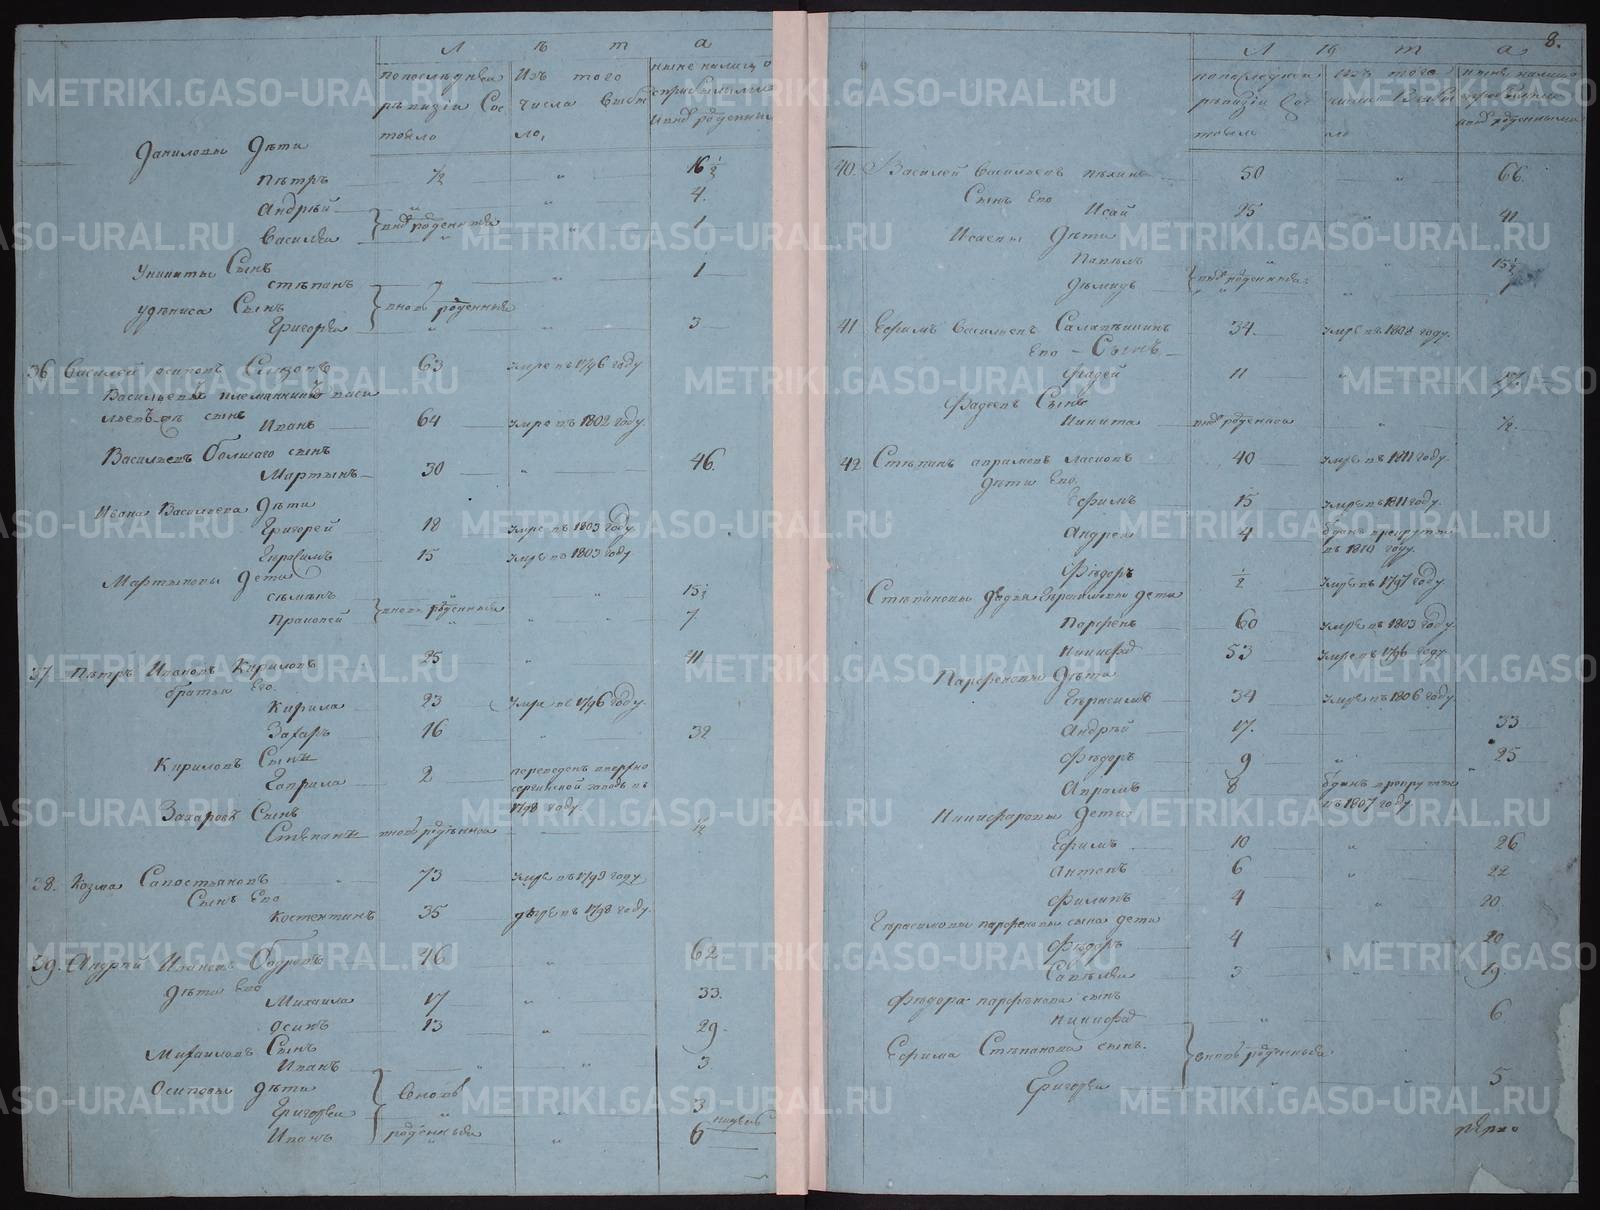 Л ѣ т а
попоследней ревизіи Сос тояло
Изъ того числа выбы ло,
ныне налицо сприбылыми и внов рожденными
Даниловы Дѣти
Пѣтръ ½ „ 16 ½
Андрѣй „ „ 4.
Василей внов рожденныя „ 1
Сынъ
стѣпанъ „ 1
Сынъ
Григорей вновь рожденныя 3
36 Василей осиповъ 63 умре въ 1796 году
Васильевъ племянникъ
сынъ Иванъ 64 умре въ 1802 году.
Васильевъ болшаго сынъ
Мартынъ 30 „ 46.
Ивана Васильева Дѣти
Григорей 18 умре въ 1803 году.
Герасимъ 15 умре въ 1803 году
Мартыновы дети
сѣменъ „ 15 ½
Пракопей вновь рожденныя „ 7
37 Пѣтръ Ивановъ Кириловъ 25 „ 41
братья Его
Кирила 23 умре въ 1796 году.
Захаръ 16 „ 32
Кириловъ Сынъ
Гаврила 2 переведен вверхно сергинской заводъ въ 1798 году.
Захаровъ Сынъ
Степанъ вновь рожденной ½
38. Козма Сапостьяновъ 73 умре въ 1799 году
Сынъ Его
Костентинъ 35 умре въ 1798 году.
39. Андрѣй Ивановъ Бобровъ 46 „ 62
дѣти Его
Михаила 17 „ 33.
Осипъ 13 „ 29.
Михаиловъ Сынъ
Иванъ „ „ 3.
Осиповы дѣти
Григорей вновь „ 3
Иванъ рожденныя „ 6
8.
Л ѣ т а
попоследней ревизіи Сос тояло
изъ того числа Выбы ло
ныне налицо сприбылыми внов рожденными
40. Василей Васильевъ 50 „ 66.
Сынъ Его
Исай 25 „ 41
Исаевы Дѣти
Павелъ „ 15 ½
Дѣмидъ внов рожденныя „
41 Ефимъ Васильевъ Салатынинъ 34. умре въ 1808 году.
Его Сынъ
Фадей 11 „ 27.
Фадеевъ Сынъ
Никита внов рожденной „ ½.
42 Стѣпанъ аврамовъ 40 умре въ 1811 году.
Дѣти Его.
Ефимъ 15 умре въ 1811 году.
Андрей 4 отданъ врекруты въ 1810 году.
Фѣдоръ ½ умре въ 1797 году.
Стѣпановы дядья Аврамовы дети
Парфенъ 60 умре въ 1803 году.
Никифоръ 53 умре въ 1796 году
Парфеновы Дѣти
Герасимъ 34 умре въ 1806 году.
Андрѣй 17. 33
Фѣдоръ 9 „ 25
Аврамъ 8 отданъ врекруты въ 1807 году
Никифоровы дети
Ефимъ 10 „ 26
Антонъ 6 „ 22
Филипъ 4 „ 20.
Герасимовы парфенова сына дети
Фѣдоръ 4 „ 20
Савелей 3 „ 19.
Фѣдора парфенова сынъ
Никифоръ „ 6
Ефима Стѣпанова сынъ. вновь рожденныя
Григорей „ „ 5
METRIKI.GASO-URAL.RU